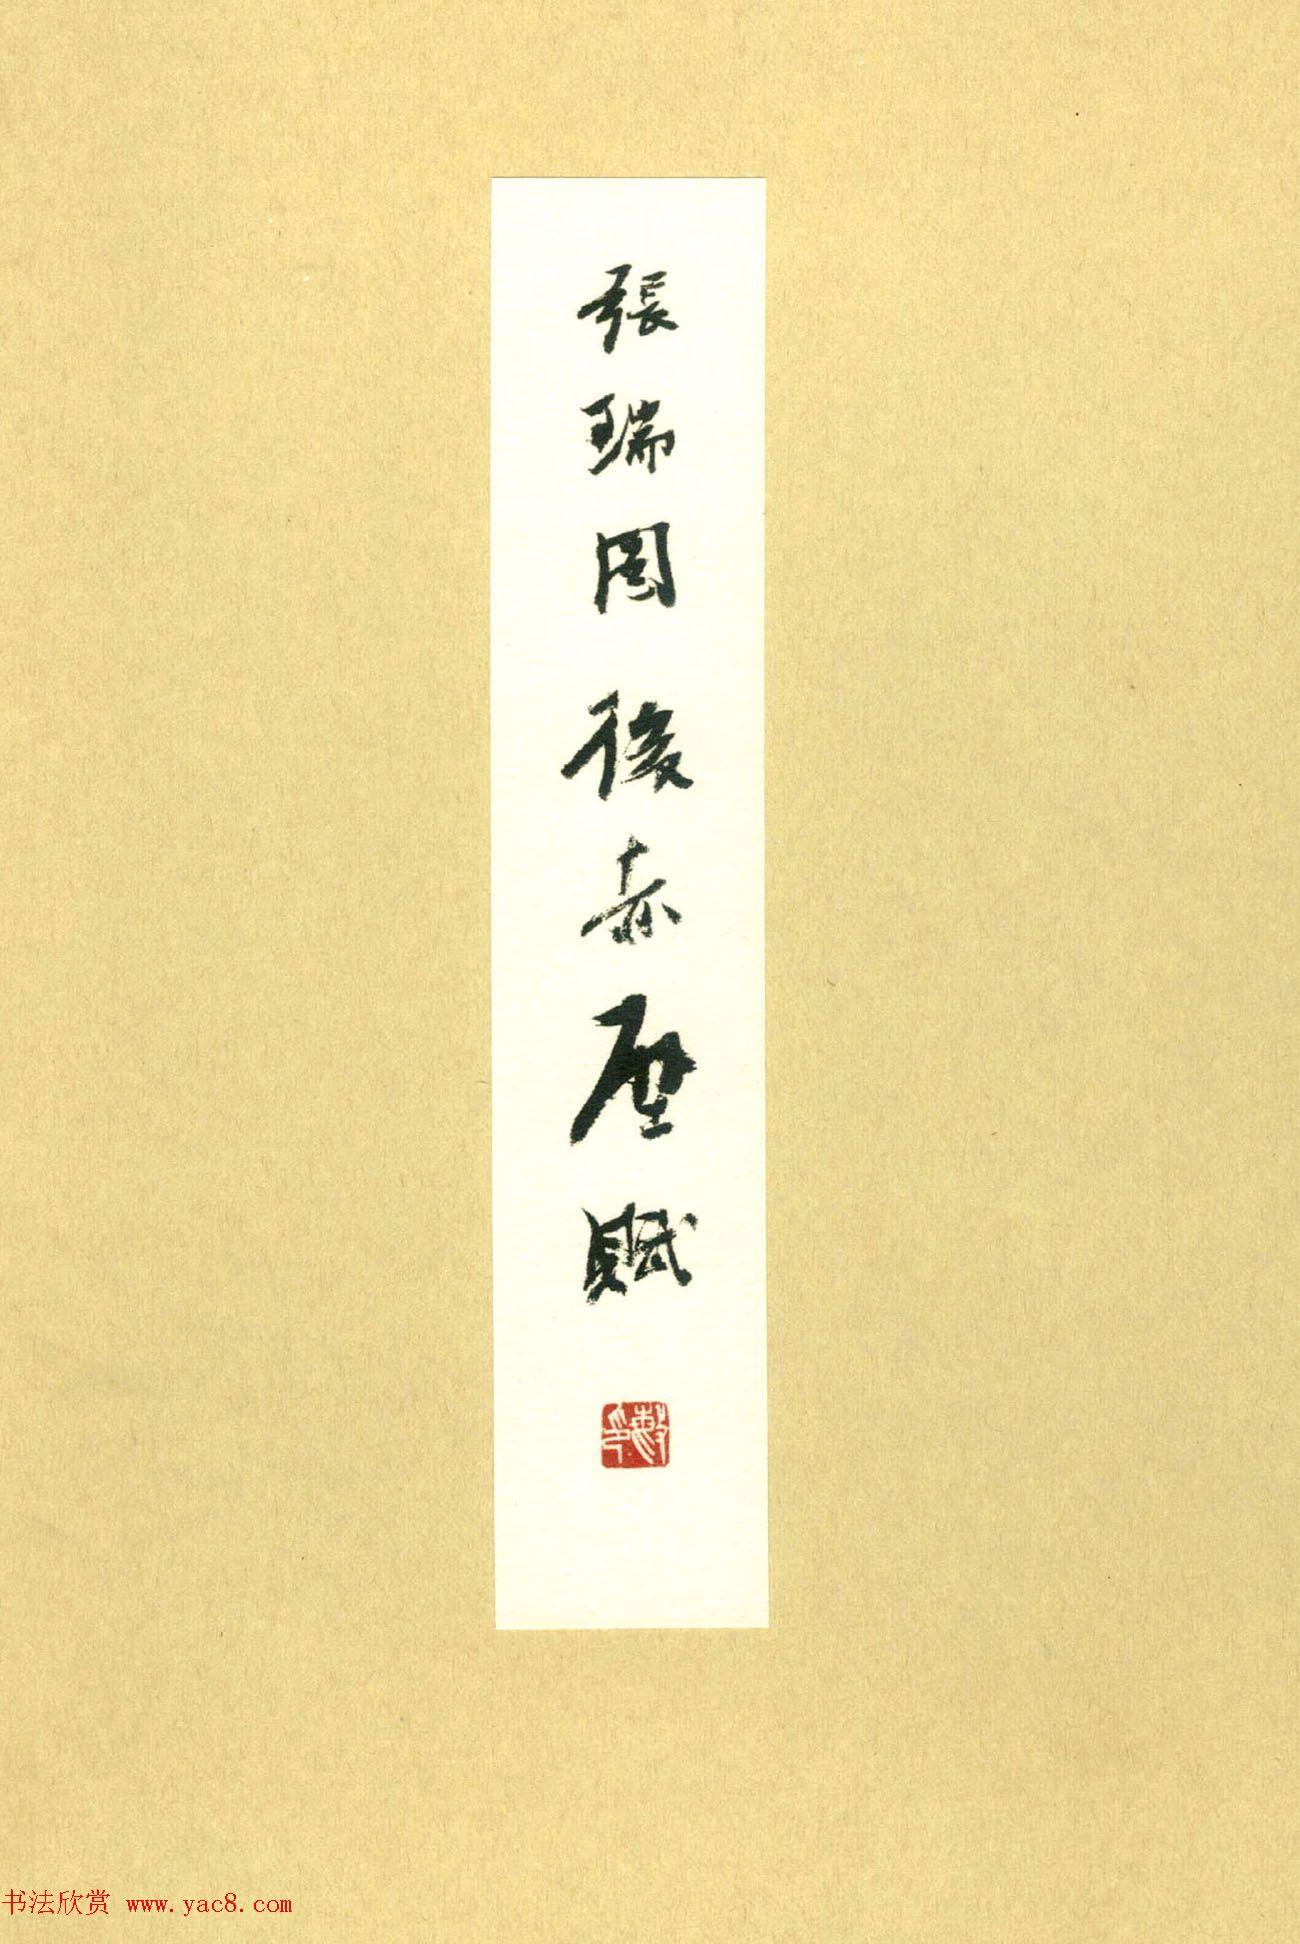 張瑞图後赤壁賦
书法欣赏 www.yac8.com